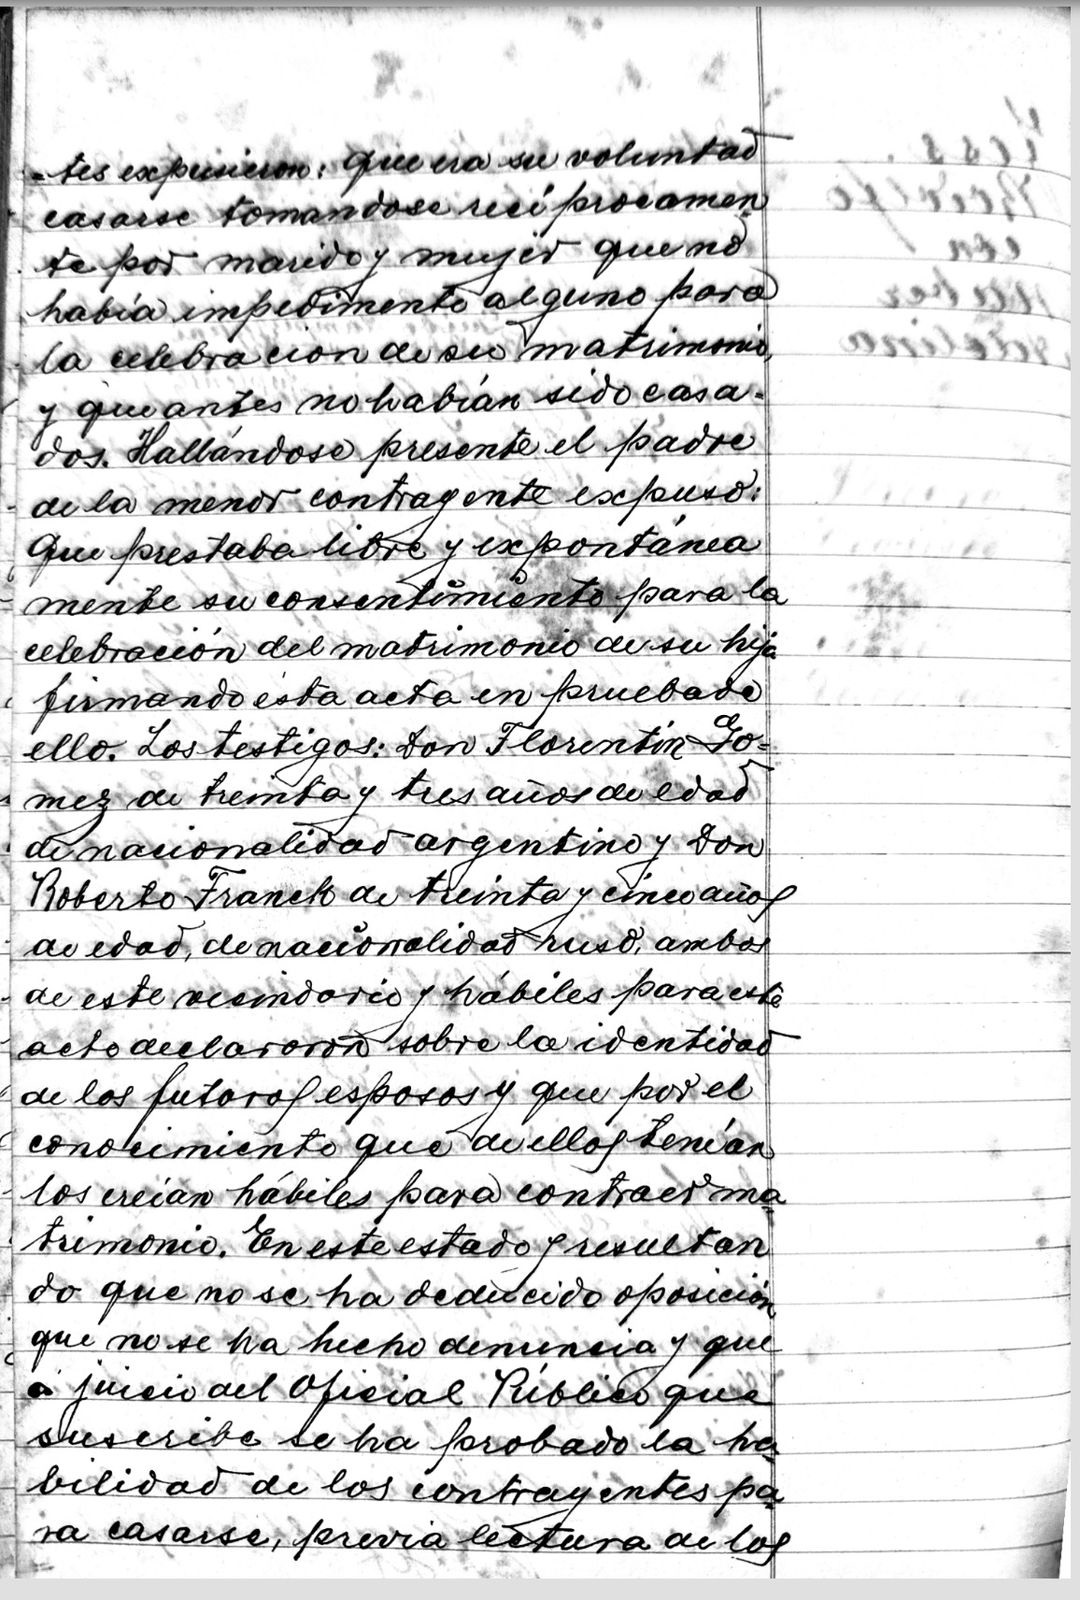 -tes expusieron: que era su voluntad
casarse tomandose recíprocamen
te por marido y mujer que no
había impedimento alguno para
la celebracion de su matrimonio,
y que antes no habían sido casa-
dos. Hallándose presente el padre
de la menor contrayente expuso:
Que prestaba libre y expontánea
mente su consentimiento para la
celebración del matrimonio de su hija
firmando ésta acta en prueba de
ello. Los testigos: Don Florentín Go=
mez de treinta y tres años de edad
de nacionalidad argentino y Don
Roberto Franck de treinta y cinco años
de edad, de nacionalidad ruso, ambos
de este vecindario y hábiles para este
acto declararon sobre la identidad
de los futuros esposos y que por el
conocimiento que de ellos tenían
los creían hábiles para contraer ma
trimonio. En este estado y resultan
do que no se ha deducido oposición
que no se ha hecho denuncia y que
á juicio del Oficial Público que
suscribe se ha probado la ha
bilidad de los contrayentes pa
ra casarse, previa lectura de los